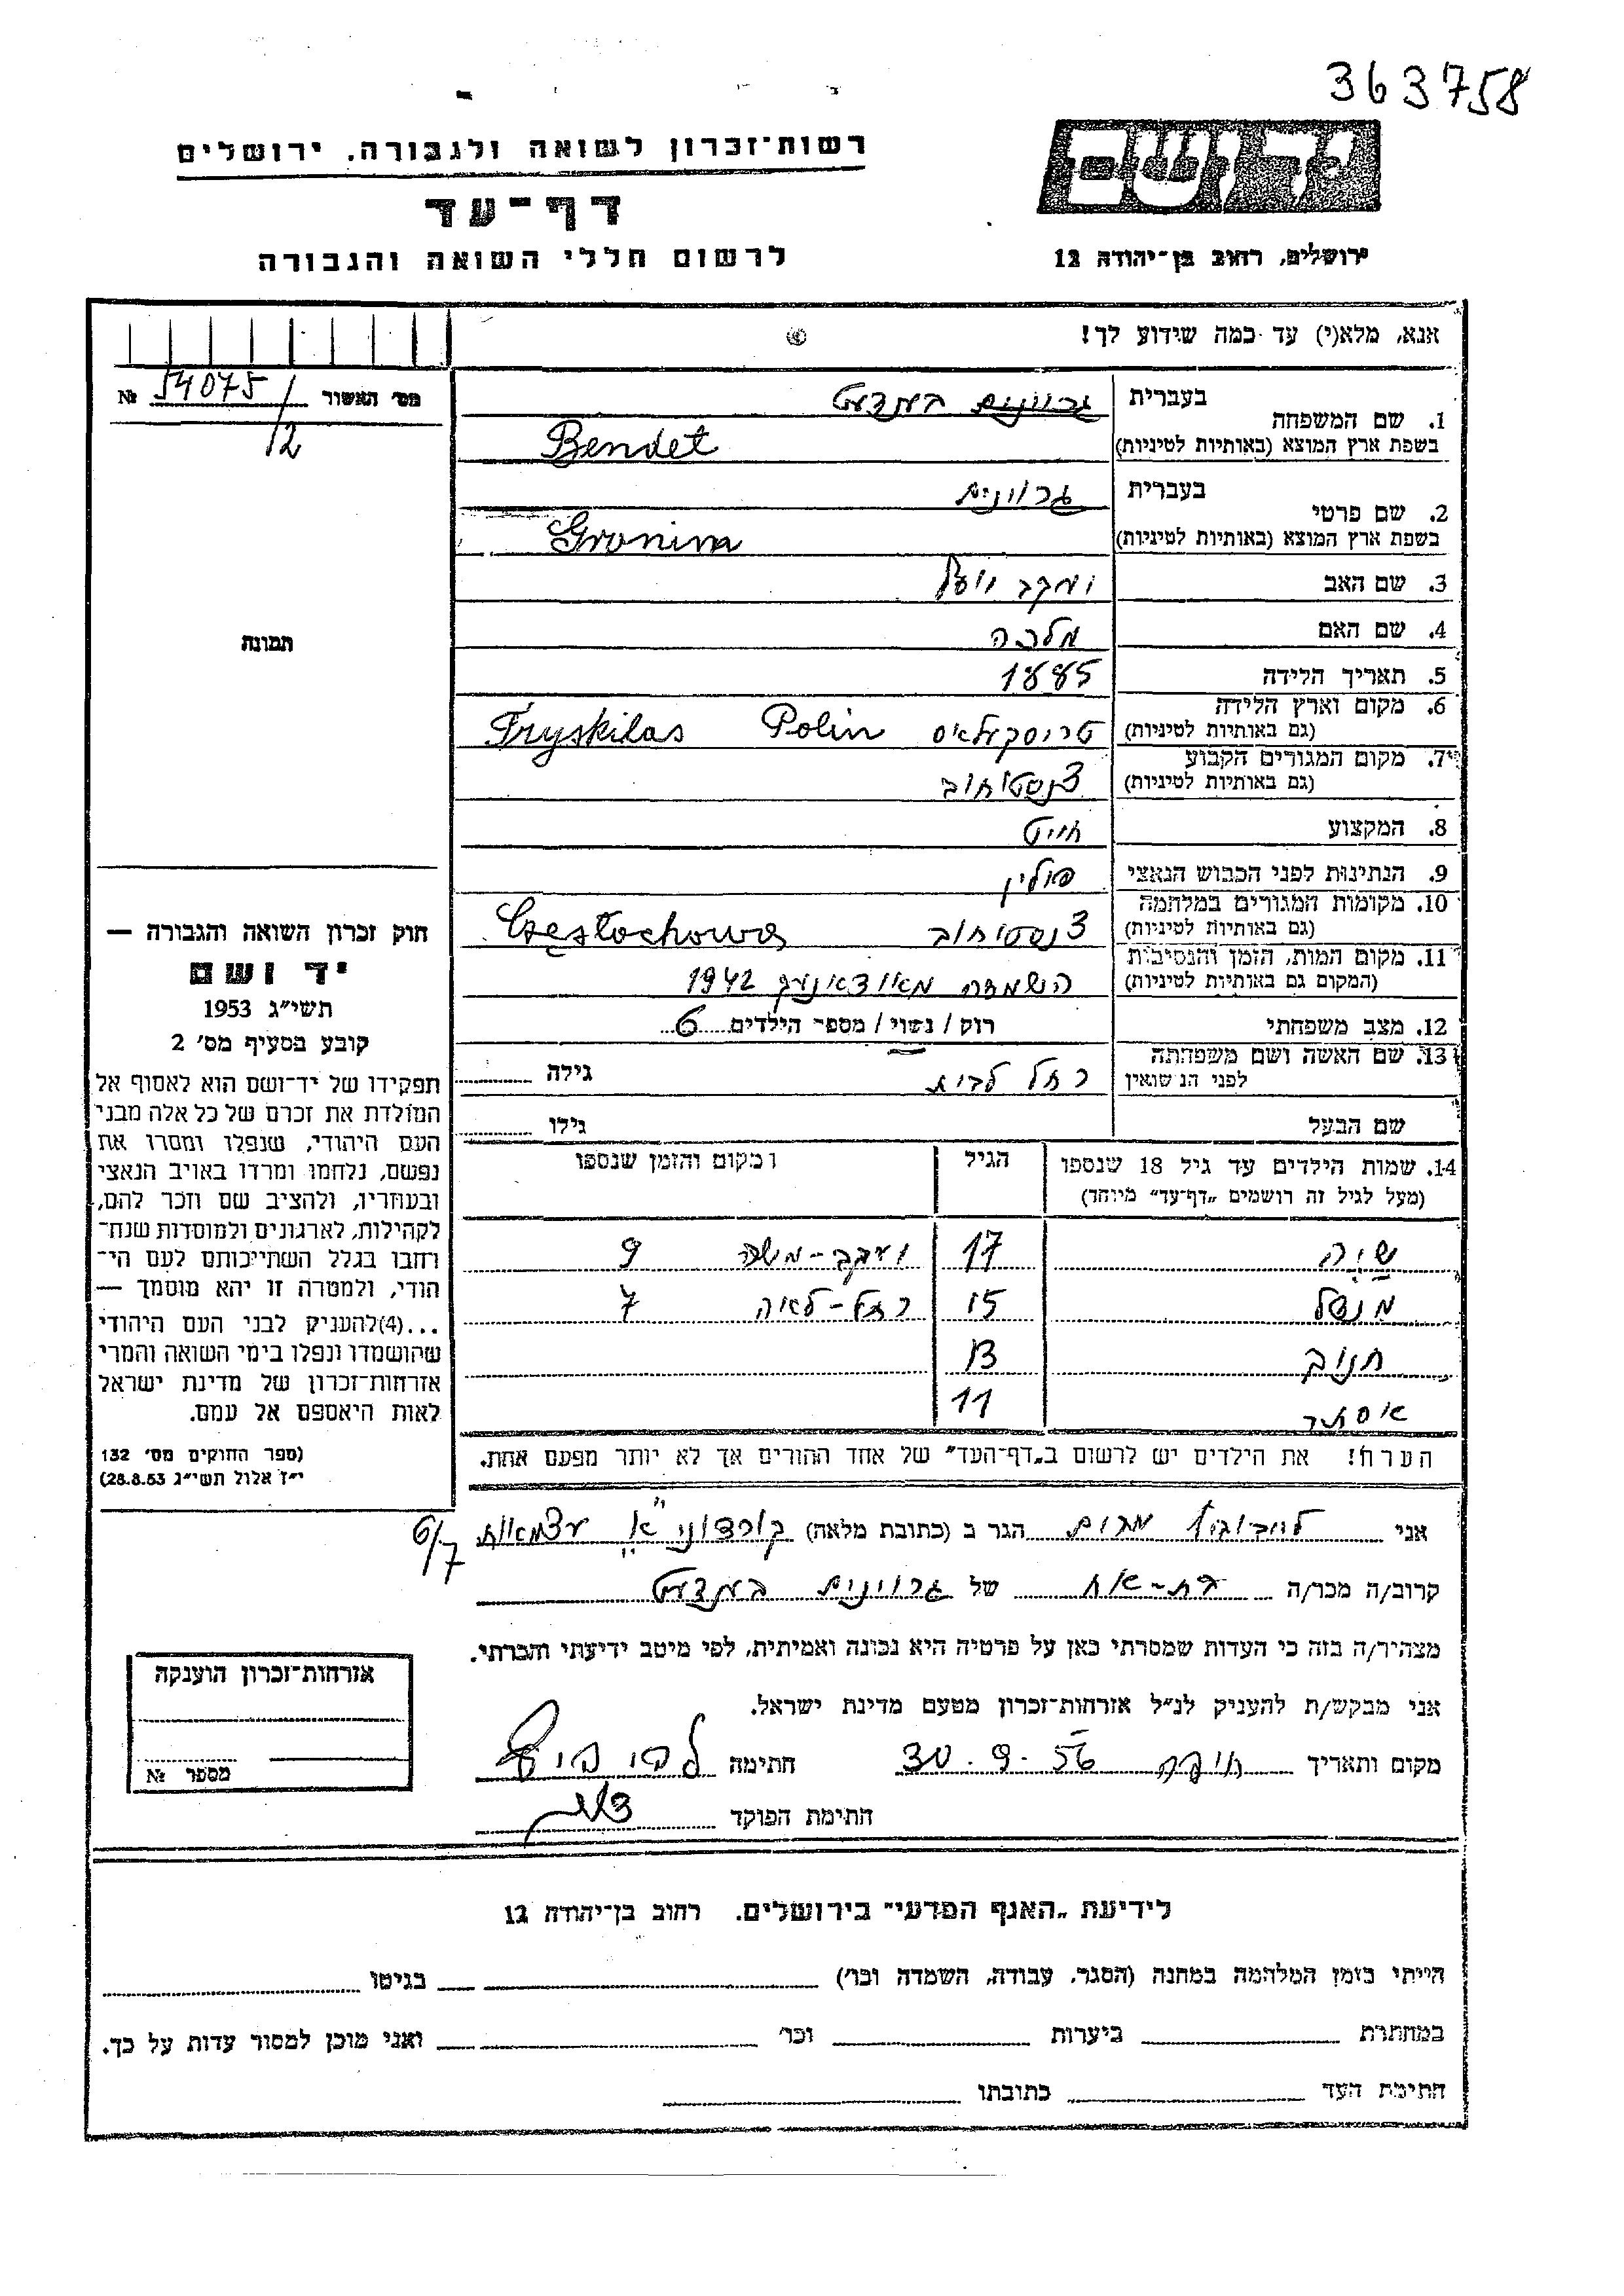 363758
רשות־זכרון לשואה ולגבורה, ירושלים
דף־עד
לרשום חללי השואה והגבורה
ירושלים, רחוב בן־יהודה 12
אנא, מלא(י) עד כמה שידוע לך!
מס׳ האשור 54075/12 №
1. שם המשפחה
בעברית בענדעט
בשפת ארץ המוצא (באותיות לטיניות) Bendet
2. שם פרטי
בעברית גרונים
בשפת ארץ המוצא (באותיות לטיניות) Gronim
3. שם האב יעקב יועל
4. שם האם מלכה
5. תאריך הלידה 1885
6. מקום וארץ הלידה
(גם באותיות לטיניות) טריסקולאס Polin Tryskilas
7. מקום המגורים הקבוע
(גם באותיות לטיניות) צנסטוחוב
8. המקצוע חייט
9. הנתינות לפני הכבוש הנאצי פולין
10. מקומות המגורים במלחמה
(גם באותיות לטיניות) צנסטוחוב Częstochowa
11. מקום המות, הזמן והנסיבות
(המקום גם באותיות לטיניות) השמדה 1942
12. מצב משפחתי רוק / נשוי / מספר הילדים 6
13. שם האשה ושם משפחתה
לפני הנשואין רחל לבית גילה
שם הבעל גילו
14. שמות הילדים עד גיל 18 שנספו הגיל ומקום והזמן שנספו
(מעל לגיל זה רושמים „דף־עד״ מיוחד)
שיה 17 יעקב-משה 9
מנדל 15 רחל-לאה 7
חנוך 13
אסתר 11
הערה! את הילדים יש לרשום ב„דף־העד״ של אחד ההורים אך לא יותר מפעם אחת.
תמונה
חוק זכרון השואה והגבורה —
יד ושם
תשי״ג 1953
קובע בסעיף מס׳ 2
תפקידו של יד־ושם הוא לאסוף אל
המולדת את זכרם של כל אלה מבני
העם היהודי, שנפלו ומסרו את
נפשם, נלחמו ומרדו באויב הנאצי
ובעוזריו, ולהציב שם וזכר להם,
לקהילות, לארגונים ולמוסדות שנח־
רחבו בגלל השתייכותם לעם הי־
הודי, ולמטרה זו יהא מוסמך —
...(4)להעניק לבני העם היהודי
שהושמדו ונפלו בימי השואה והמרי
אזרחות־זכרון של מדינת ישראל
לאות היאספם אל עמם.
(ספר החוקים מס׳ 132
י״ז אלול תשי״ג 28.8.53)
אני מרים הגר ב (כתובת מלאה) עצמאות
6/7
קרוב/ה מכר/ה בת-אח של גרונים בענדעט
מצהיר/ה בזה כי העדות שמסרתי כאן על פרטיה היא נכונה ואמיתית, לפי מיטב ידיעתי והכרתי.
אני מבקש/ת להעניק לנ״ל אזרחות־זכרון מטעם מדינת ישראל.
מקום ותאריך חיפה 30.9.56 חתימה
חתימת הפוקד
אזרחות־זכרון הוענקה
מספר №
לידיעת „האגף המדעי״ בירושלים, רחוב בן־יהודה 12
הייתי בזמן המלחמה במחנה (הסגר, עבודה, השמדה וכו׳) בגיטו
במחתרת ביערות וכו׳ ואני מוכן למסור עדות על כך.
חתימת העד כתובתו